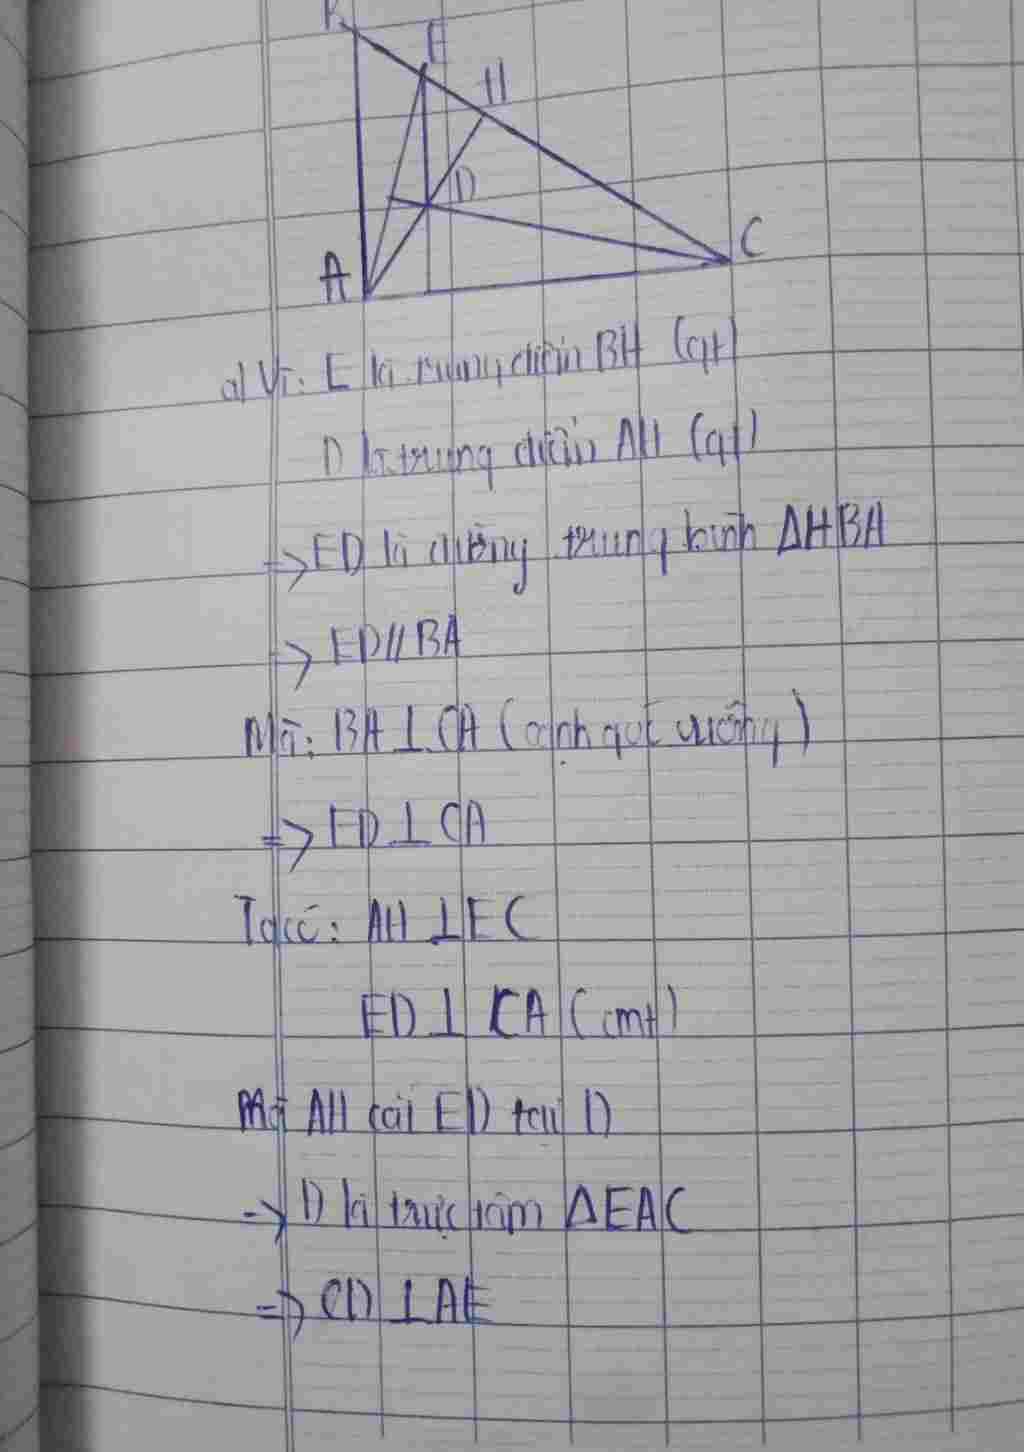 B
E
H
D
C
A
a) Vì: E là trung điểm BH (gt)
D là trung điểm AH (gt)
=> ED là đường trung bình ΔHBA
=> ED//BA
Mà: BA ⊥ CA (cạnh góc vuông)
=> ED ⊥ CA
Ta có: AH ⊥ EC
ED ⊥ CA (cmt)
Mà AH cắt ED tại D
=> D là trực tâm ΔEAC
=> CD ⊥ AE